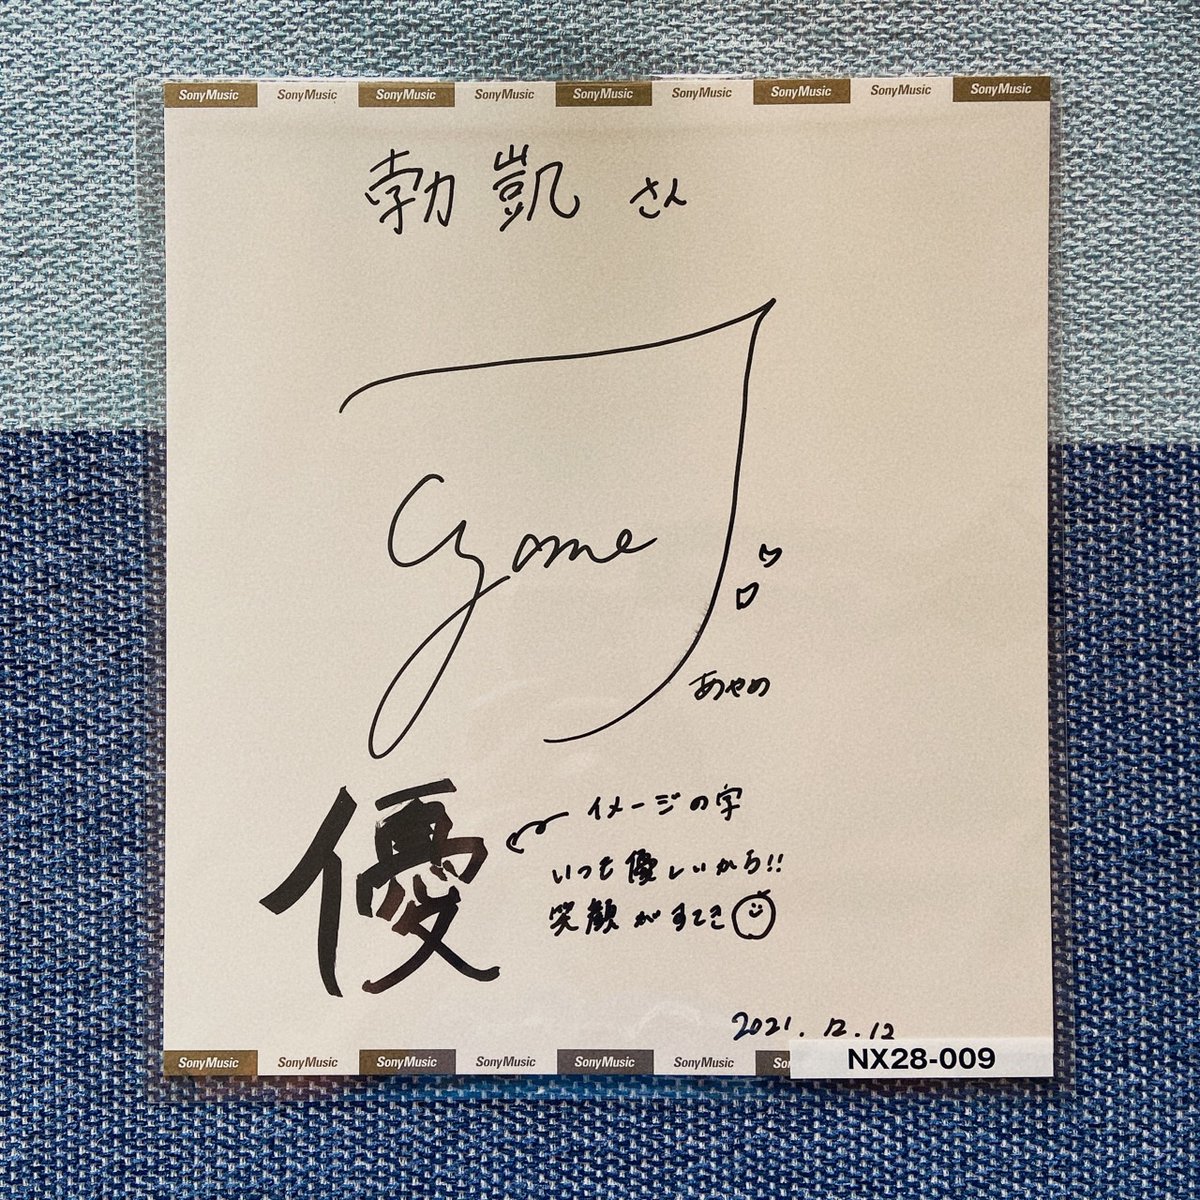 SonyMusic SonyMusic SonyMusic SonyMusic SonyMusic SonyMusic SonyMusic SonyMusic SonyMusic
勃凱さん
ayame
あやめ
優
イメージの字
いつも優しいから!!
笑顔がすてき
2021.12.12
SonyMusic SonyMusic SonyMusic SonyMusic SonyMusic SonyMusic
NX28-009